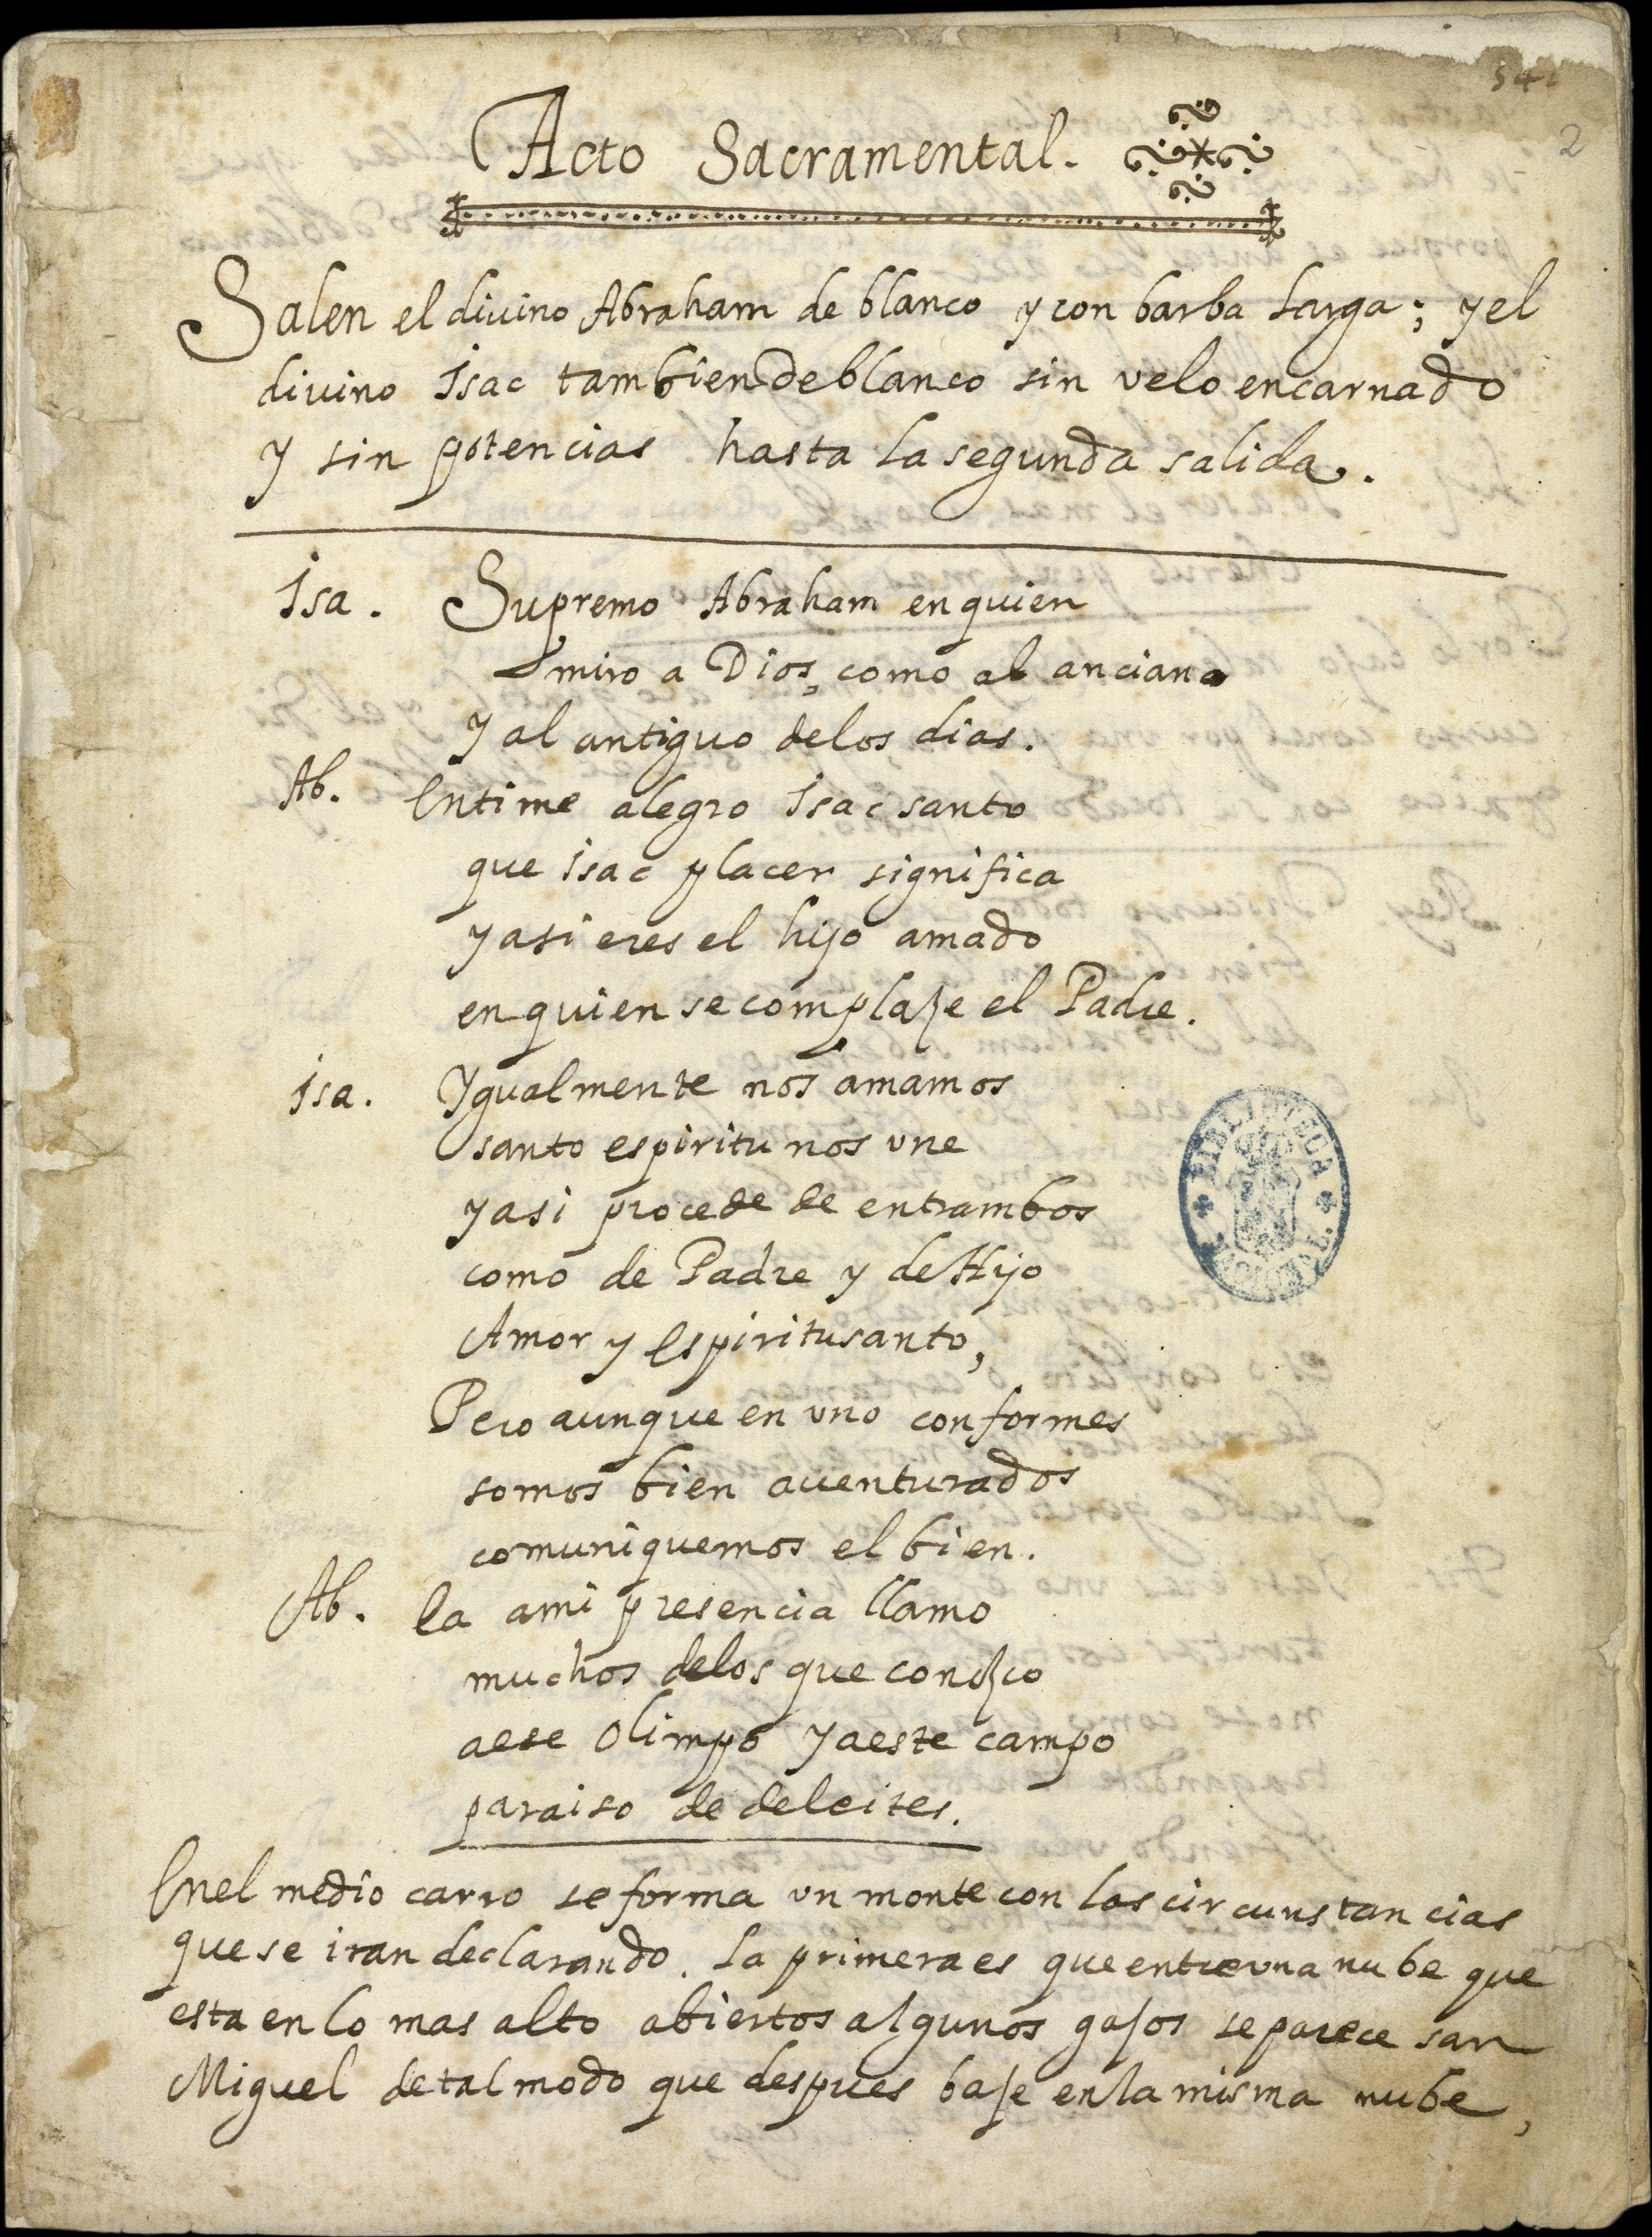 2
Acto Sacramental.
Salen el diuino Abraham de blanco y con barba larga; y el
diuino Isac tambien de blanco sin velo encarnado
y sin potencias hasta la segunda salida.
Isa. Supremo Abraham en quien
miro a Dios, como al anciano
y al antiguo delos dias.
Ab. Entime alegro Isac santo
que Isac placer significa
y asi eres el hijo amado
en quien se complaze el Padre.
Isa. Ygualmente nos amamos
santo espiritu nos vne
y asi procede de entrambos
como de Padre y de Hijo
Amor y Espiritusanto,
Pero aunque en vno conformes
somos bien auenturados
comuniquemos el bien.
Ab. Ea ami presencia llamo
muchos delos que conozco
aese Olimpo y aeste campo
paraiso de deleites.
BIBLIOTECA NACIONAL
Enel medio carro se forma vn monte con las circunstancias
que se iran declarando. La primera es que entre vna nube que
esta en lo mas alto abiertos algunos gajos se parece san
Miguel de tal modo que despues baje en la misma nube,